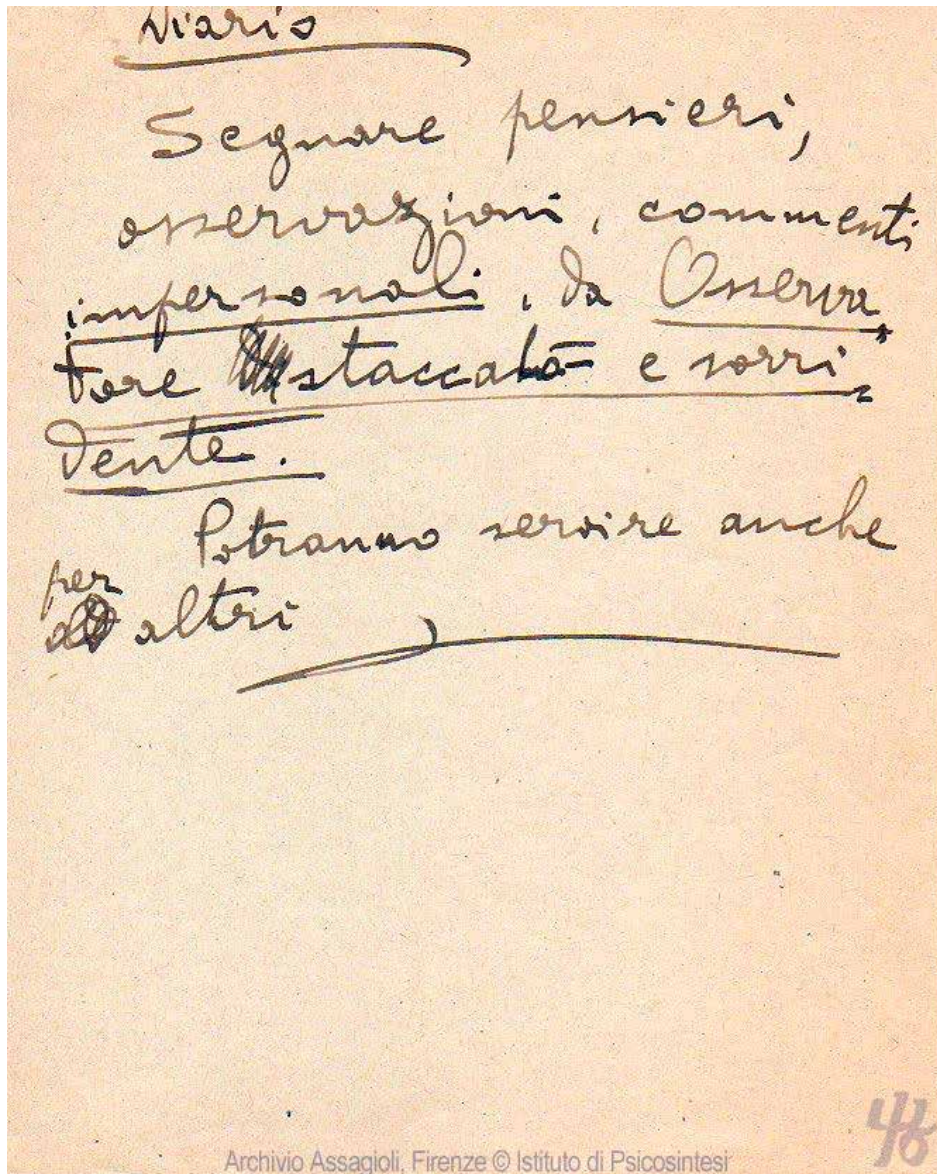 Diario
Segnare pensieri,
osservazioni, commenti
impersonali, da Osserva
tore staccato e sorri
dente.
Potranno servire anche
per
altri
Archivio Assagioli, Firenze © Istituto di Psicosintesi